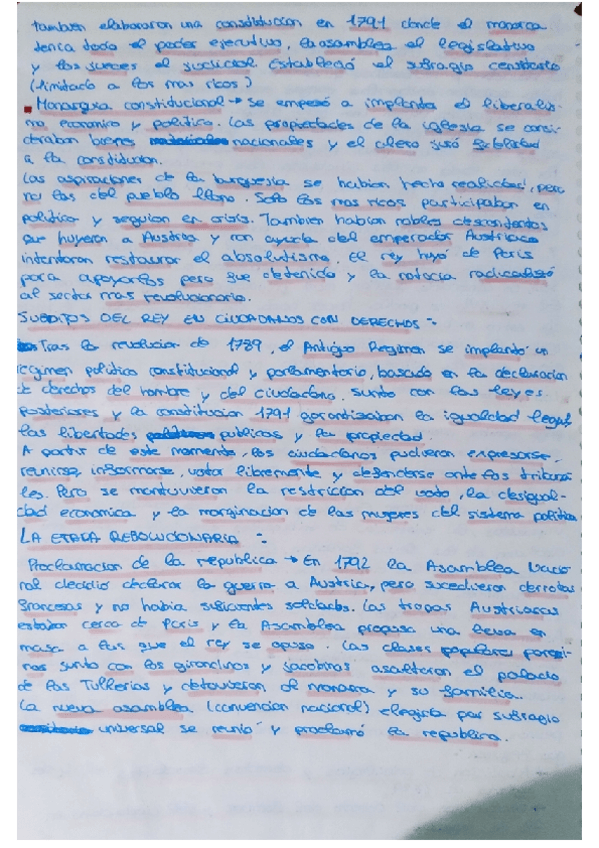 tambien elaboraron una constitucion en 1791 donde el monarca
tenia todo el poder ejecutivo, la asamblea el legislativo
y los jueces el judicial. Estableció el sufragio censitario
(limitado a los mas ricos)
Monarquia constitucional → Se empezó a implanta el liberalis-
mo economico y politico. Las propiedades de la iglesia se consi-
deraban bienes nacionales y el clero juró fidelidad
a la constitucion.
Las aspiraciones de la burguesia se habian hecho realidad, pero
no las del pueblo llano. Solo los mas ricos participaban en
politica y seguian en crisis. Tambien habian nobles descontentos
que huyeron a Austria y con ayuda del emperador Austriaco
intentaron restaurar el absolutismo. El rey huyó de Paris
para apoyarlos pero fue detenido y la noticia radicalizó
al sector mas revolucionario.
SUBDITOS DEL REY EN CIUDADANOS CON DERECHOS :-
Tras la revolucion de 1789, el Antiguo Regimen se implantó un
regimen politico constitucional y parlamentario, basado en la declaracion
de derechos del hombre y del ciudadano. Junto con las leyes
posteriores y la constitucion 1791 garantizaban la igualdad legal,
las libertades publicas y la propiedad.
A partir de este momento, los ciudadanos pudieron expresarse,
reunirse, informarse, votar libremente y defenderse ante los tribuna-
les. Pero se mantuvieron la restriccion del voto, la desigual-
dad economica y la marginacion de las mujeres del sistema politico
LA ETAPA REBOLUCIONARIA :-
Proclamacion de la republica → En 1792 la Asamblea Nacio
nal decidio declarar la guerra a Austria, pero sucedieron derrotas
francesas y no habia suficientes soldados. Las tropas Austriacas
estaban cerca de Paris y la Asamblea propuso una leva en
masa a las que el rey se opuso. Las clases populares parisi-
nas junto con los girondinos y jacobinos asaltaron el palacio
de las Tullerias y detuvieron al monarca y su familia.
La nueva asamblea (convencion nacional) elegida por sufragio
universal se reunió y proclamó la republica.